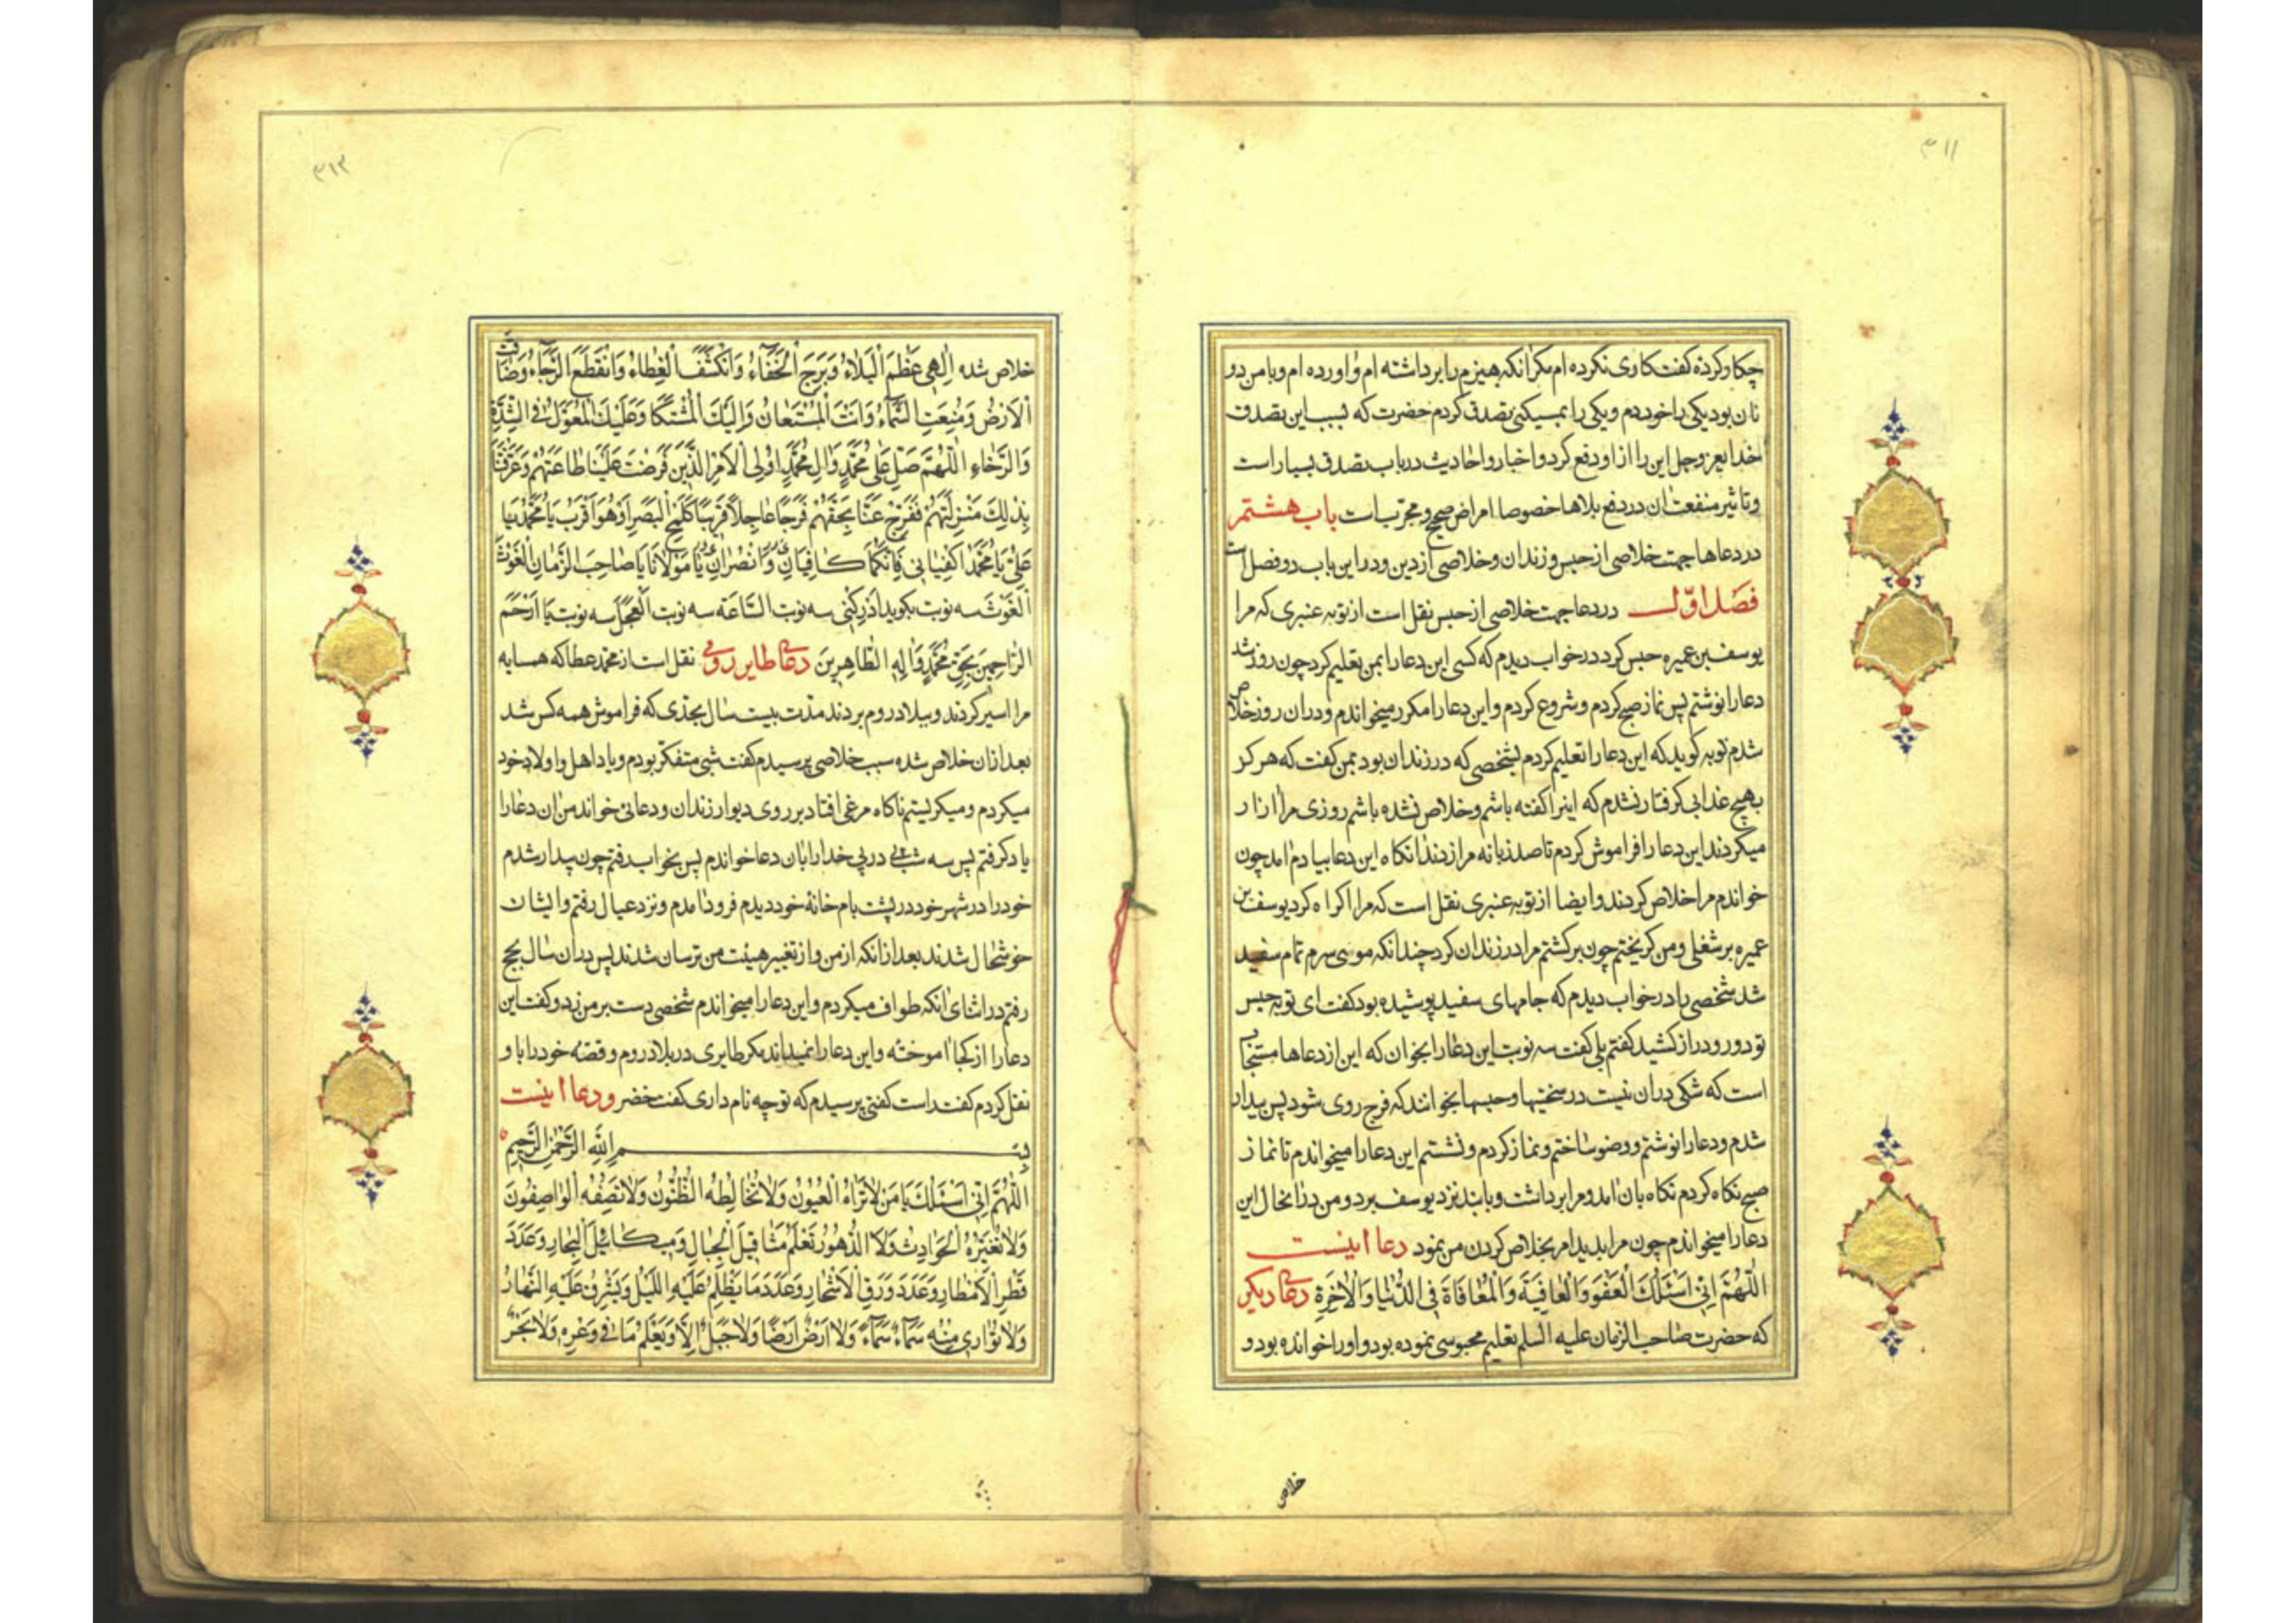 ۳۱۱
چکار کردهٔ کفت کاری نکرده ام مکر انکه هیزم را برداشته ام و اورده ام و با من دو
نان بود یکی را خوردم و یکی را بمسکینی تصدق کردم حضرت که بسبب این تصدق
خدایعز وجل این را از او دفع کرد و اخبار و احادیث در باب تصدق بسیار است
و تاثیر منفعت ان در دفع بلاها خصوصا امراض صحیح و مجرب است باب هشتم
در دعاها جهت خلاصی از حبس و زندان و خلاصی از دین و در این باب دو فصل است
فصل اوّل در دعا جهت خلاصی از حبس نقل است از توبه عنبری که مرا
یوسف بن عمیره حبس کرد در خواب دیدم که کسی این دعا را بمن تعلیم کرد چون روز شد
دعا را نوشتم پس نماز صبح کردم و شروع کردم و این دعا را مکرر میخواندم و در ان روز خلاص
شدم توبه کوید که این دعا را تعلیم کردم بشخصی که در زندان بود بمن کفت که هرکز
بهیچ عذابی کرفتار نشدم که اینرا کفته باشم و خلاص نشده باشم روزی مرا ازار
میکردند این دعا را فراموش کردم تا صد زبانه مرا زدند انکاه این دعا بیادم امد چون
خواندم مرا خلاص کردند و ایضا از توبه عنبری نقل است که مرا اکراه کرد یوسف بن
عمیره بر شغلی و من کریختم چون برکشتم مرا در زندان کرد چندانکه موی سرم تمام سفید
شد شخصی را در خواب دیدم که جامهای سفید پوشیده بود کفت ای توبه حبس
تو دور و دراز کشید کفتم بلی کفت سه نوبت این دعا را بخوان که این از دعاها مستجاب
است که شکی در ان نیست در سختیها و حبسها بخوانند که فرج روی شود پس بیدار
شدم و دعا را نوشتم و وضو ساختم و نماز کردم و نشستم این دعا را میخواندم تا نماز
صبح نکاه کردم نکاه بان امد و مرا برداشت و با بند نزد یوسف برد و من در انحال این
دعا را میخواندم چون مرا بدید امر بخلاص کردن من نمود دعا اینست
اَللّهُمَّ اِنّی اَسْئَلُكَ الْعَفْوَ وَالْعافِیَةَ وَالْمُعافاةَ فِی الدُّنْیا وَالْاخِرَةِ دعای دیکر
که حضرت صاحب الزمان علیه السلم تعلیم محبوسی نموده بود و او را خوانده بود و
خلاص
۳۱۲
خلاص شده اِلهی عَظُمَ الْبَلاءُ وَبَرِحَ الْخَفاءُ وَانْكَشَفَ الْغِطاءُ وَانْقَطَعَ الرَّجاءُ وَضاقَتِ
الْاَرْضُ وَمُنِعَتِ السَّماءُ وَاَنْتَ الْمُسْتَعانُ وَاِلَیْكَ الْمُشْتَكا وَعَلَیْكَ الْمُعَوَّلُ فِی الشِّدَّةِ
وَالرَّخاءِ اَللّهُمَّ صَلِّ عَلی مُحَمَّدٍ وَالِ مُحَمَّدٍ اُولِی الْاَمْرِ الَّذینَ فَرَضْتَ عَلَیْنا طاعَتَهُمْ وَعَرَّفْتَنا
بِذلِكَ مَنْزِلَتَهُمْ فَفَرِّجْ عَنّا بِحَقِّهِمْ فَرَجًا عاجِلًا قَریبًا كَلَمْحِ الْبَصَرِ اَوْ هُوَ اَقْرَبُ یا مُحَمَّدُ یا
عَلِیُّ یا مُحَمَّدُ اكْفِیانی فَاِنَّكُما كافِیانِ وَانْصُرانی یا مَوْلانا یا صاحِبَ الزَّمانِ الْغَوْثَ
الْغَوْثَ سه نوبت بکوید اَدْرِكْنی سه نوبت السّاعَةَ سه نوبت الْعَجَلَ سه نوبت یا اَرْحَمَ
الرّاحِمینَ بِحَقِّ مُحَمَّدٍ وَالِهِ الطّاهِرینَ دعای طایر رومی نقل است از محمد عطا که همسایه
مرا اسیر کردند و ببلاد روم بردند مدّت بیست سال بحدّی که فراموش همه کس شد
بعد از ان خلاص شده سبب خلاصی پرسیدم کفت شبی متفکّر بودم و یاد اهل و اولاد خود
میکردم و میکریستم ناکاه مرغی افتاد بر روی دیوار زندان و دعائی خواند من ان دعا را
یاد کرفتم پس سه شب پی در پی خدا را بان دعا خواندم پس بخواب رفتم چون بیدار شدم
خود را در شهر خود در پشت بام خانهٔ خود دیدم فرود امدم و نزد عیال رفتم و ایشان
خوشحال شدند بعد از انکه از من و از تغییر هیئت من ترسان شدند پس در ان سال بحج
رفتم در اثنای انکه طواف میکردم و این دعا را میخواندم شخصی دست بر من زد و کفت این
دعا را از کجا اموختهٔ و این دعا را نمیداند مکر طایری در بلاد روم و قصهٔ خود را با و
نقل کردم کفت راست کفتی پرسیدم که تو چه نام داری کفت خضر و دعا اینست
بِسْمِ اللهِ الرَّحْمنِ الرَّحیمِ
اَللّهُمَّ اِنّی اَسْئَلُكَ یا مَنْ لا تَراهُ الْعُیُونُ وَلا تُخالِطُهُ الظُّنُونُ وَلا تَصِفُهُ الْواصِفُونَ
وَلا تُغَیِّرُهُ الْحَوادِثُ وَلا الدُّهُورُ تَعْلَمُ مَثاقیلَ الْجِبالِ وَمیكائیلَ الْبِحارِ وَعَدَدَ
قَطْرِ الْاَمْطارِ وَعَدَدَ وَرَقِ الْاَشْجارِ وَعَدَدَ ما یَظْلِمُ عَلَیْهِ اللَّیْلُ وَیَشْرِقُ عَلَیْهِ النَّهارُ
وَلا تُواری مِنْهُ سَماءٌ سَماءً وَلا اَرْضٌ اَرْضًا وَلا جَبَلٌ اِلّا وَیَعْلَمُ ما فی وَعْرِهِ وَلا بَحْرٌ